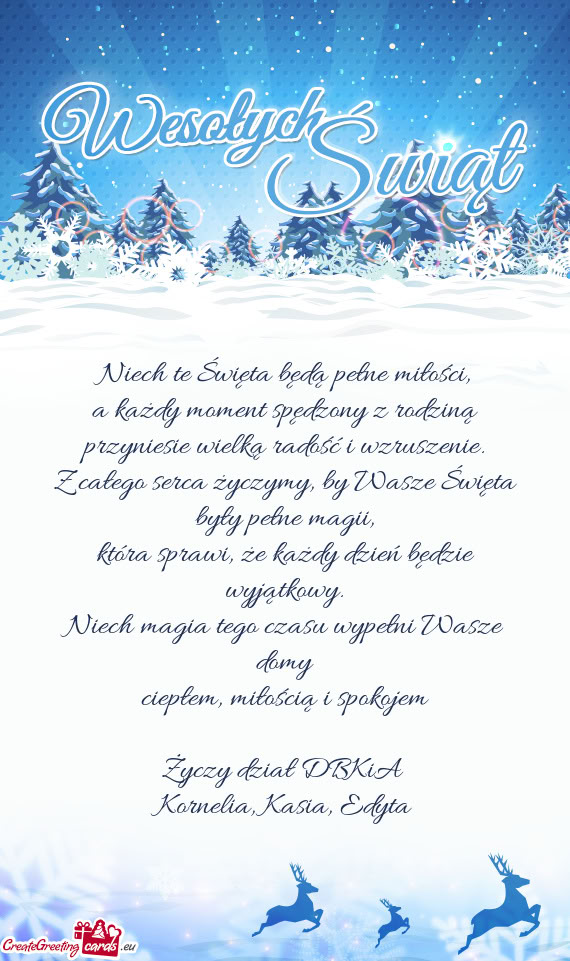 Wesołych
Świąt
Niech te Święta będą pełne miłości,
a każdy moment spędzony z rodziną
przyniesie wielką radość i wzruszenie.
Z całego serca życzymy, by Wasze Święta
były pełne magii,
która sprawi, że każdy dzień będzie
wyjątkowy.
Niech magia tego czasu wypełni Wasze
domy
ciepłem, miłością i spokojem
Życzy dział DBKiA
Kornelia, Kasia, Edyta
CreateGreeting cards .eu